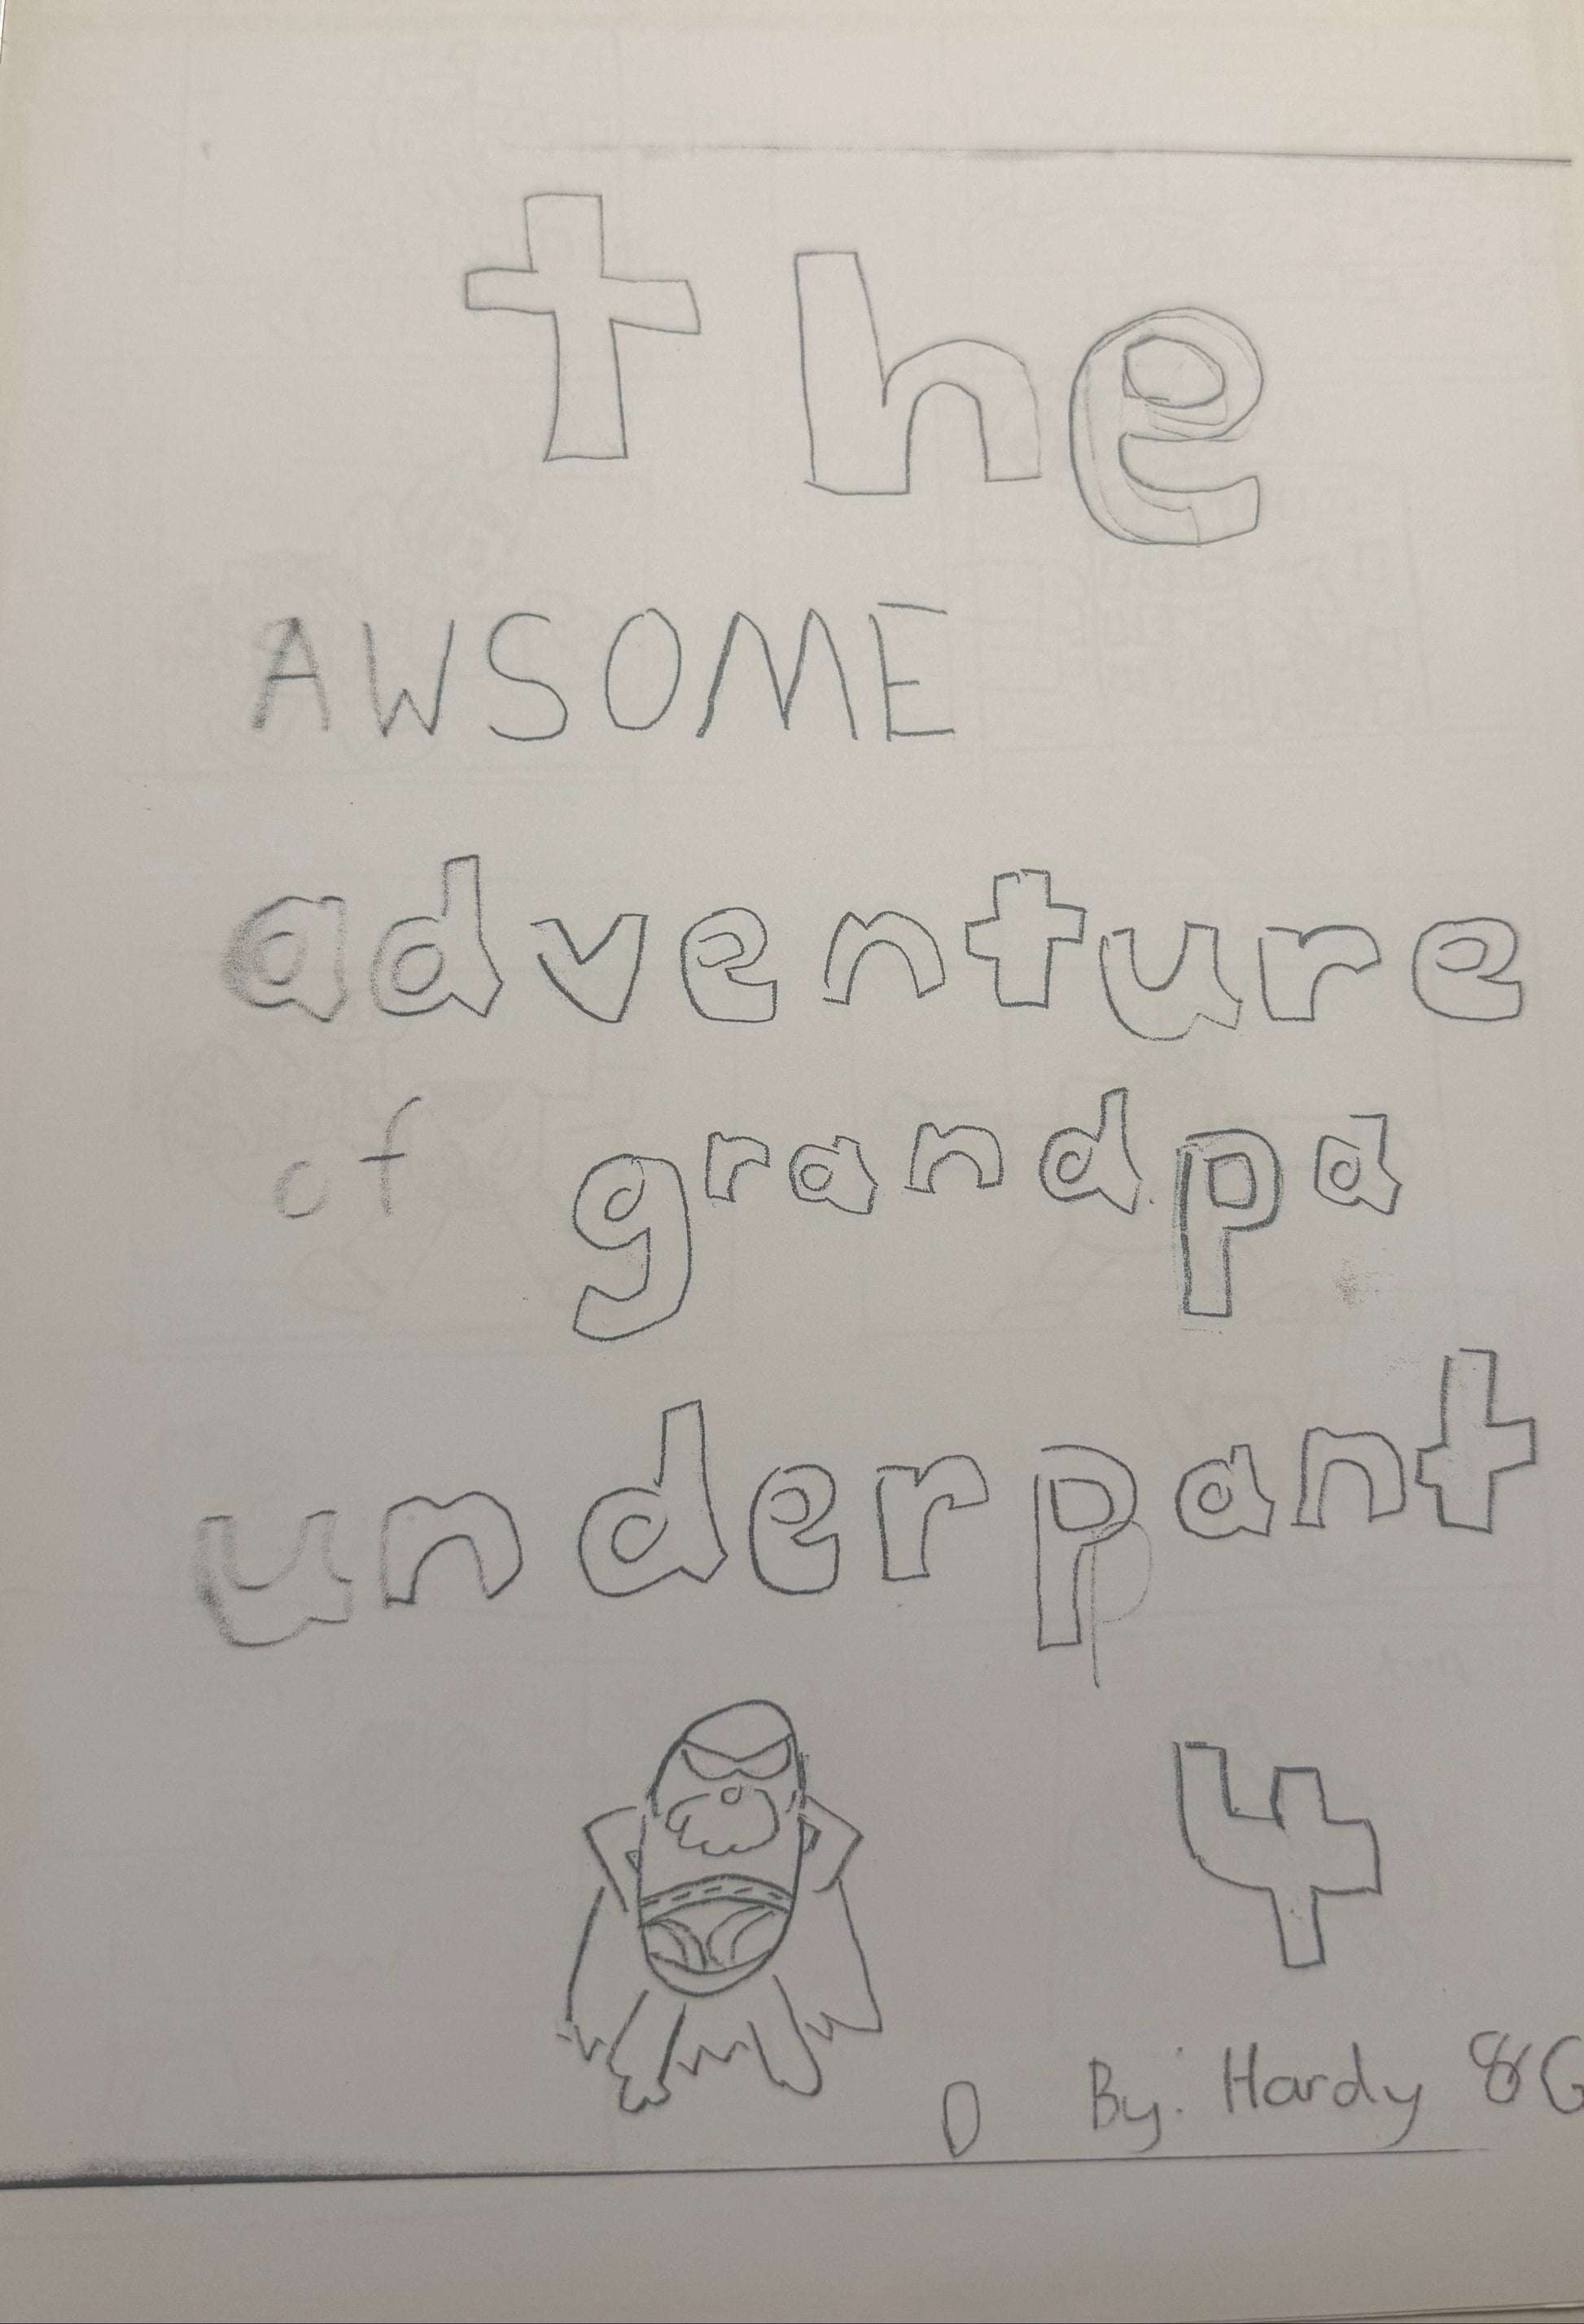 the
AWSOME
adventure
of grandpa
underpant
4
By: Hardy 8G